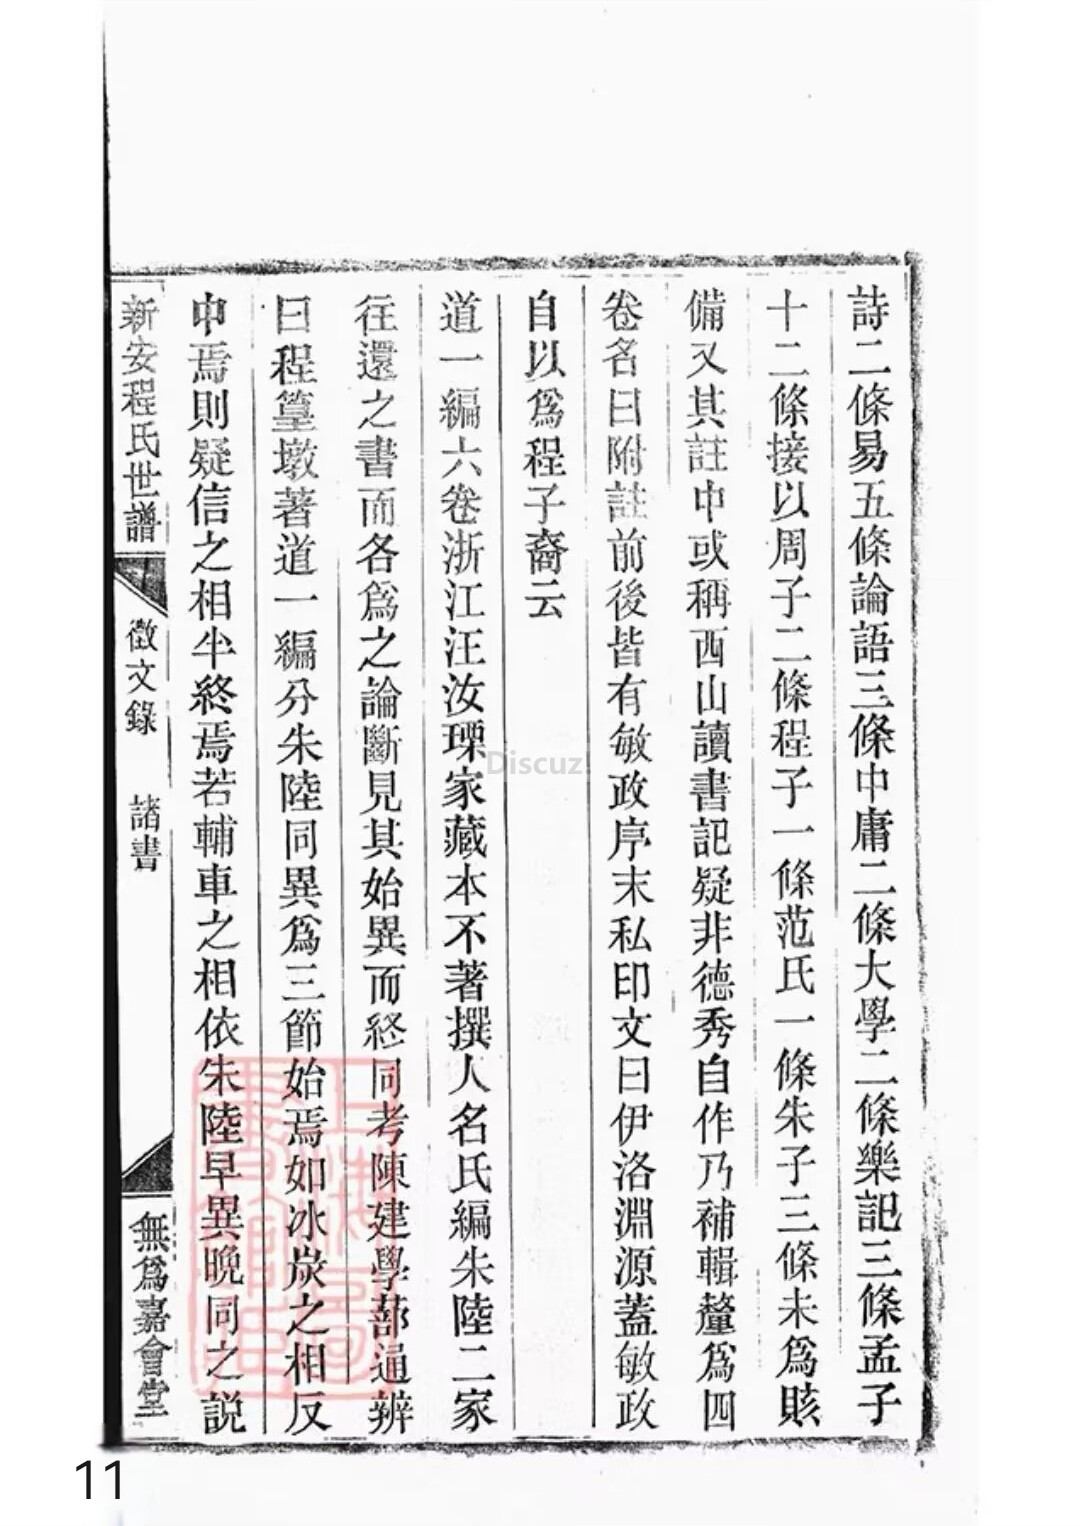 詩二條易五條論語三條中庸二條大學二條樂記三條孟子
十二條接以周子二條程子一條范氏一條朱子三條未爲賅
備又其註中或稱西山讀書記疑非德秀自作乃補輯釐爲四
卷名曰附註前後皆有敏政序末私印文曰伊洛淵源蓋敏政
自以爲程子裔云
道一編六卷浙江汪汝瑮家藏本不著撰人名氏編朱陸二家
往還之書而各爲之論斷見其始異而終同考陳建學蔀通辨
曰程篁墩著道一編分朱陸同異爲三節始焉如冰炭之相反
中焉則疑信之相半終焉若輔車之相依朱陸早異晚同之説
新安程氏世譜
徵文錄
諸書
無爲嘉會堂
上海圖書館藏
Discuz!
11